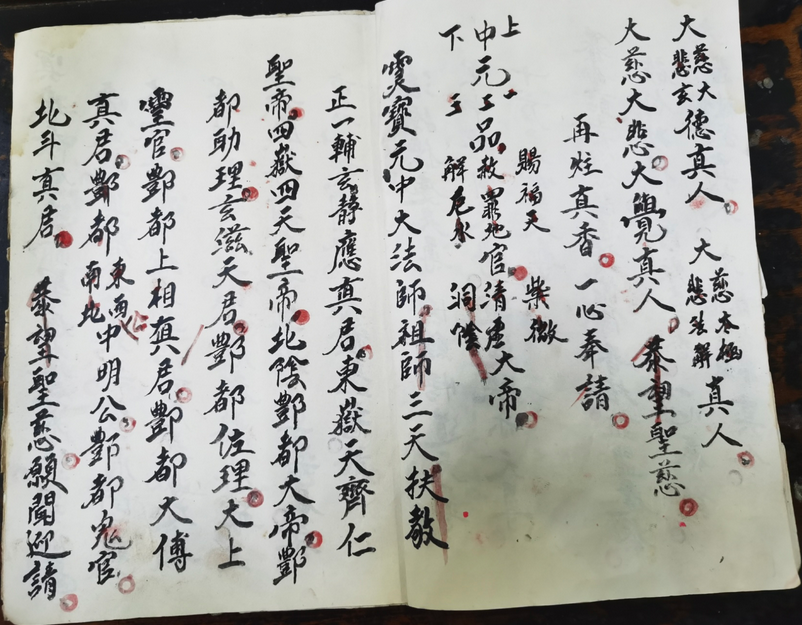 大慈大悲玄德真人 大慈太極悲法解真人
大慈大悲大覺真人 恭望聖慈
再炷真香 一心奉請
上中下元一二三品賜福天赦罪地解厄水官紫微清虛洞陰大帝
靈寶元中大法師祖師三天扶教
正一輔玄靜應真君東嶽天齊仁
聖帝四嶽四天聖帝北陰酆都大帝酆
都助理玄滋天君酆都佐理大上
靈官酆都上相真君酆都大傅
真君酆都東西南北中明公酆都鬼官
北斗真君 恭望聖慈願聞迎請